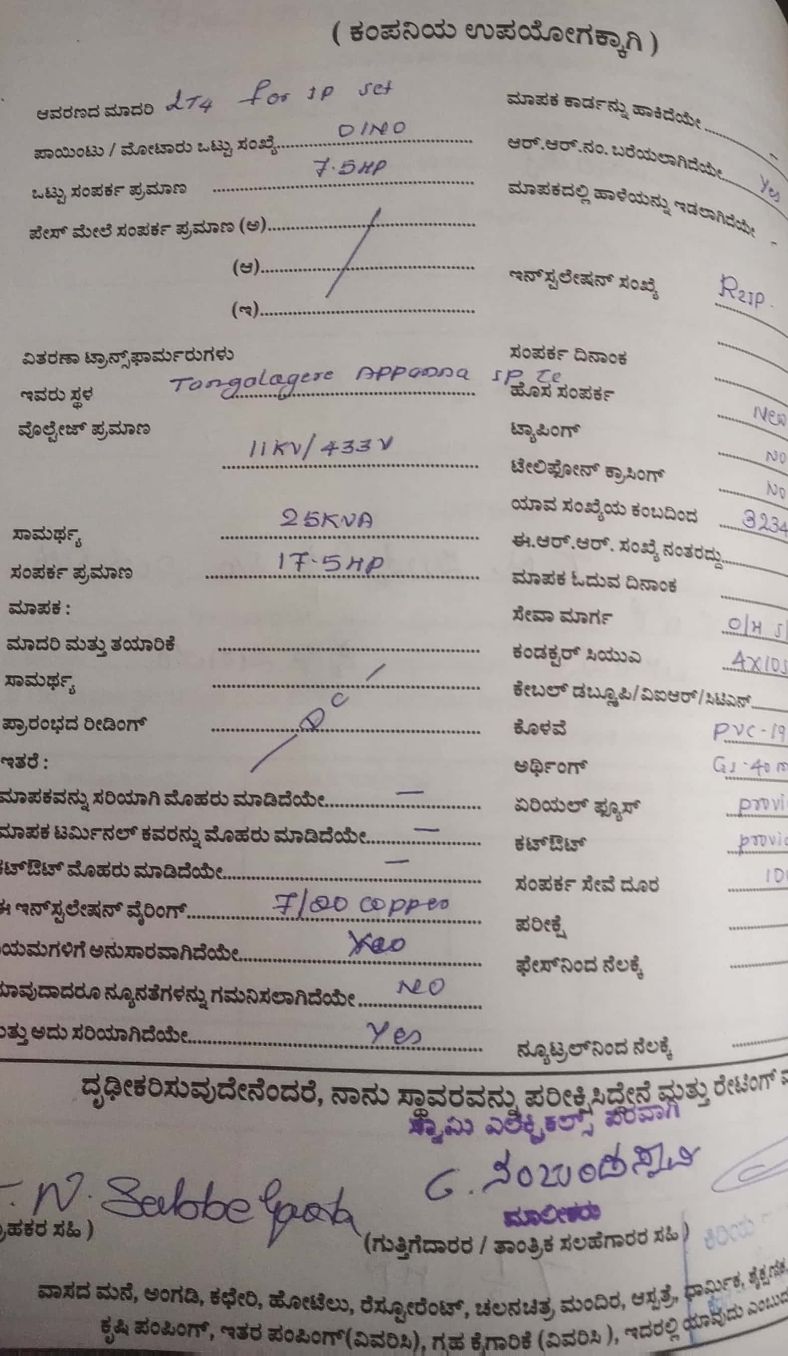 ( ಕಂಪನಿಯ ಉಪಯೋಗಕ್ಕಾಗಿ )
ಆವರಣದ ಮಾದರಿ LT4 for IP set
ಪಾಯಿಂಟು / ಮೋಟಾರು ಒಟ್ಟು ಸಂಖ್ಯೆ
ಒಟ್ಟು ಸಂಪರ್ಕ ಪ್ರಮಾಣ 7.5HP
ಪೇಸ್ ಮೇಲೆ ಸಂಪರ್ಕ ಪ್ರಮಾಣ (ಅ)
(ಆ)
(ಇ)
ವಿತರಣಾ ಟ್ರಾನ್ಸ್‌ಫಾರ್ಮರುಗಳು
ಇವರು ಸ್ಥಳ Tongalagere
ವೊಲ್ಟೇಜ್ ಪ್ರಮಾಣ 11KV/433V
ಸಾಮರ್ಥ್ಯ 25KVA
ಸಂಪರ್ಕ ಪ್ರಮಾಣ 17.5HP
ಮಾಪಕ :
ಮಾದರಿ ಮತ್ತು ತಯಾರಿಕೆ
ಸಾಮರ್ಥ್ಯ
ಪ್ರಾರಂಭದ ರೀಡಿಂಗ್ DC
ಇತರೆ :
ಮಾಪಕವನ್ನು ಸರಿಯಾಗಿ ಮೊಹರು ಮಾಡಿದೆಯೇ —
ಮಾಪಕ ಟರ್ಮಿನಲ್ ಕವರನ್ನು ಮೊಹರು ಮಾಡಿದೆಯೇ —
ಕಟ್‌ಔಟ್ ಮೊಹರು ಮಾಡಿದೆಯೇ —
ಈ ಇನ್‌ಸ್ಟಲೇಷನ್ ವೈರಿಂಗ್ 7/20 copper
ಯಮಗಳಿಗೆ ಅನುಸಾರವಾಗಿದೆಯೇ Yes
ಯಾವುದಾದರೂ ನ್ಯೂನತೆಗಳನ್ನು ಗಮನಿಸಲಾಗಿದೆಯೇ NO
ಮತ್ತು ಅದು ಸರಿಯಾಗಿದೆಯೇ Yes
ಮಾಪಕ ಕಾರ್ಡನ್ನು ಹಾಕಿದೆಯೇ -
ಆರ್.ಆರ್.ನಂ. ಬರೆಯಲಾಗಿದೆಯೇ Yes
ಮಾಪಕದಲ್ಲಿ ಹಾಳೆಯನ್ನು ಇಡಲಾಗಿದೆಯೇ -
ಇನ್‌ಸ್ಟಲೇಷನ್ ಸಂಖ್ಯೆ
ಸಂಪರ್ಕ ದಿನಾಂಕ
ಹೊಸ ಸಂಪರ್ಕ New
ಟ್ಯಾಪಿಂಗ್ NO
ಟೇಲಿಫೋನ್ ಕ್ರಾಸಿಂಗ್ NO
ಯಾವ ಸಂಖ್ಯೆಯ ಕಂಬದಿಂದ 3234
ಈ.ಆರ್.ಆರ್. ಸಂಖ್ಯೆ ನಂತರದ್ದು
ಮಾಪಕ ಓದುವ ದಿನಾಂಕ
ಸೇವಾ ಮಾರ್ಗ O/H
ಕಂಡಕ್ಟರ್ ಸಿಯುಎ 4X10S
ಕೇಬಲ್ ಡಬ್ಲ್ಯೂಪಿ/ವಿಐಆರ್/ಸಿಟಿಎಸ್
ಕೊಳವೆ PVC-19
ಅರ್ಥಿಂಗ್ GI-40
ಏರಿಯಲ್ ಫ್ಯೂಸ್ provi
ಕಟ್‌ಔಟ್ provi
ಸಂಪರ್ಕ ಸೇವೆ ದೂರ
ಪರೀಕ್ಷೆ
ಫೇಸ್‌ನಿಂದ ನೆಲಕ್ಕೆ
ನ್ಯೂಟ್ರಲ್‌ನಿಂದ ನೆಲಕ್ಕೆ
ದೃಢೀಕರಿಸುವುದೇನೆಂದರೆ, ನಾನು ಸ್ಥಾವರವನ್ನು ಪರೀಕ್ಷಿಸಿದ್ದೇನೆ ಮತ್ತು ರೇಟಿಂಗ್
ಸ್ವಾಮಿ ಎಲೆಕ್ಟ್ರಿಕಲ್ಸ್ ಪರವಾಗಿ
ಮಾಲೀಕರು
ಹಕರ ಸಹಿ )
(ಗುತ್ತಿಗೆದಾರರ / ತಾಂತ್ರಿಕ ಸಲಹೆಗಾರರ ಸಹಿ) ಕಿರಿಯ
ವಾಸದ ಮನೆ, ಅಂಗಡಿ, ಕಛೇರಿ, ಹೋಟೆಲು, ರೆಸ್ಟೋರೆಂಟ್, ಚಲನಚಿತ್ರ ಮಂದಿರ, ಆಸ್ಪತ್ರೆ, ಧಾರ್ಮಿಕ, ಶೈಕ್ಷಣಿಕ,
ಕೃಷಿ ಪಂಪಿಂಗ್, ಇತರ ಪಂಪಿಂಗ್(ವಿವರಿಸಿ), ಗೃಹ ಕೈಗಾರಿಕೆ (ವಿವರಿಸಿ ), ಇದರಲ್ಲಿ ಯಾವುದು ಎಂಬುದ